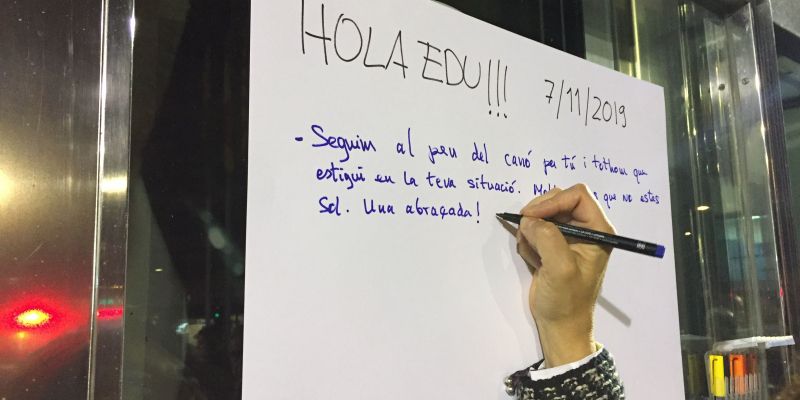 HOLA EDU!!!
7/11/2019
- Seguim al peu del canó per tú i tothom que
estigui en la teva situació. que no estas
Sol. Una abraçada!